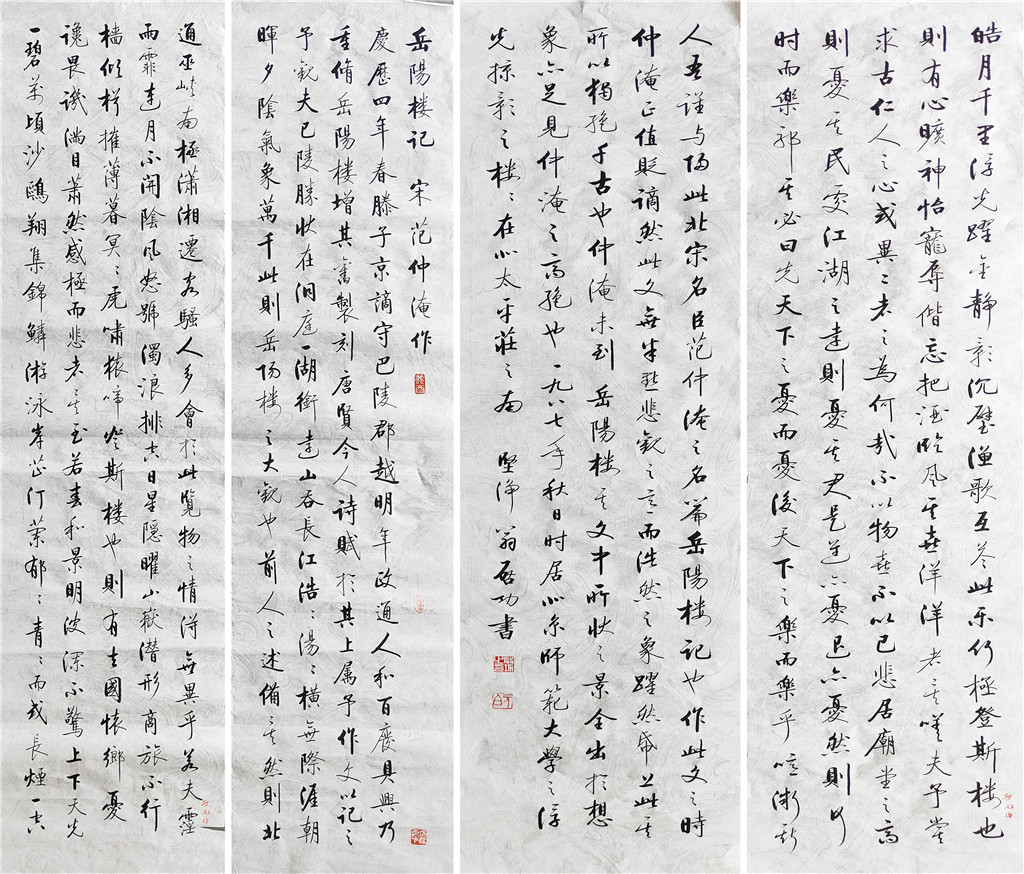 岳陽楼記 宋 范仲淹作
慶歷四年春滕子京謫守巴陵郡越明年政通人和百廢具興乃
重脩岳陽楼增其舊製刻唐賢今人詩賦於其上属予作文以記之
予觀夫巴陵勝状在洞庭一湖銜遠山吞長江浩〻湯〻橫無際涯朝
暉夕陰氣象萬千此則岳陽楼之大觀也前人之述備矣然則北
通巫峽南極瀟湘遷客騷人多會於此覽物之情得無異乎若夫霪
雨霏連月不開陰風怒號濁浪排空日星隱曜山嶽潛形商旅不行
檣傾楫摧薄暮冥〻虎嘯猿啼登斯楼也則有去國懷鄉憂
讒畏譏滿目蕭然感極而悲者矣至若春和景明波瀾不驚上下天光
一碧萬頃沙鷗翔集錦鱗游泳岸芷汀蘭郁〻青〻而或長煙一空
皓月千里浮光躍金靜影沉璧漁歌互答此樂何極登斯楼也
則有心曠神怡寵辱偕忘把酒臨風其喜洋洋者矣嗟夫予嘗
求古仁人之心或異二者之為何哉不以物喜不以己悲居廟堂之高
則憂其民處江湖之遠則憂其君是進亦憂退亦憂然則何
時而樂邪其必曰先天下之憂而憂後天下之樂而樂乎噫微斯
人吾誰与歸此北宋名臣范仲淹之名篇岳陽楼記也作此文之時
仲淹正值貶謫然此文無半點悲觀之言而浩然之象躍然紙上此其
所以獨絕千古也仲淹未到岳陽楼其文中所状之景全出於想
象亦足見仲淹之高絕也一九八七年秋日時居北京師範大學之浮
光掠影之楼〻在北太平莊之南 堅淨翁啟功書